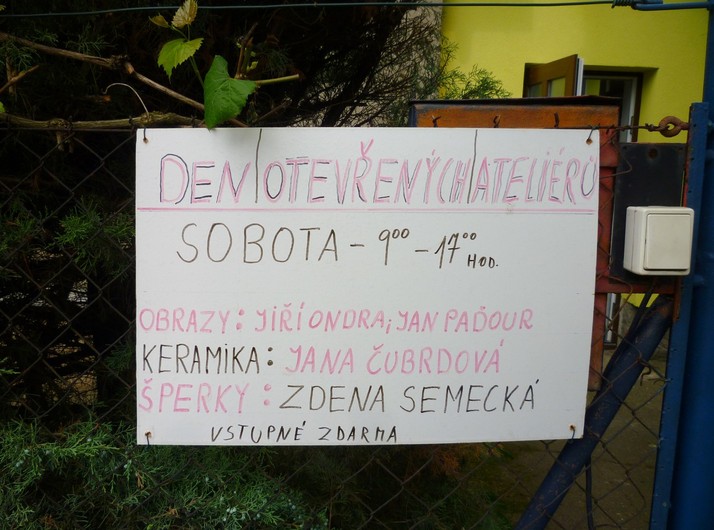 DEN OTEVŘENÝCH ATELIÉRŮ
SOBOTA - 9⁰⁰ - 17⁰⁰ HOD.
OBRAZY: JIŘÍ ONDRA, JAN PAĎOUR
KERAMIKA: JANA ČUBRDOVÁ
ŠPERKY: ZDENA SEMECKÁ
VSTUPNÉ ZDARMA